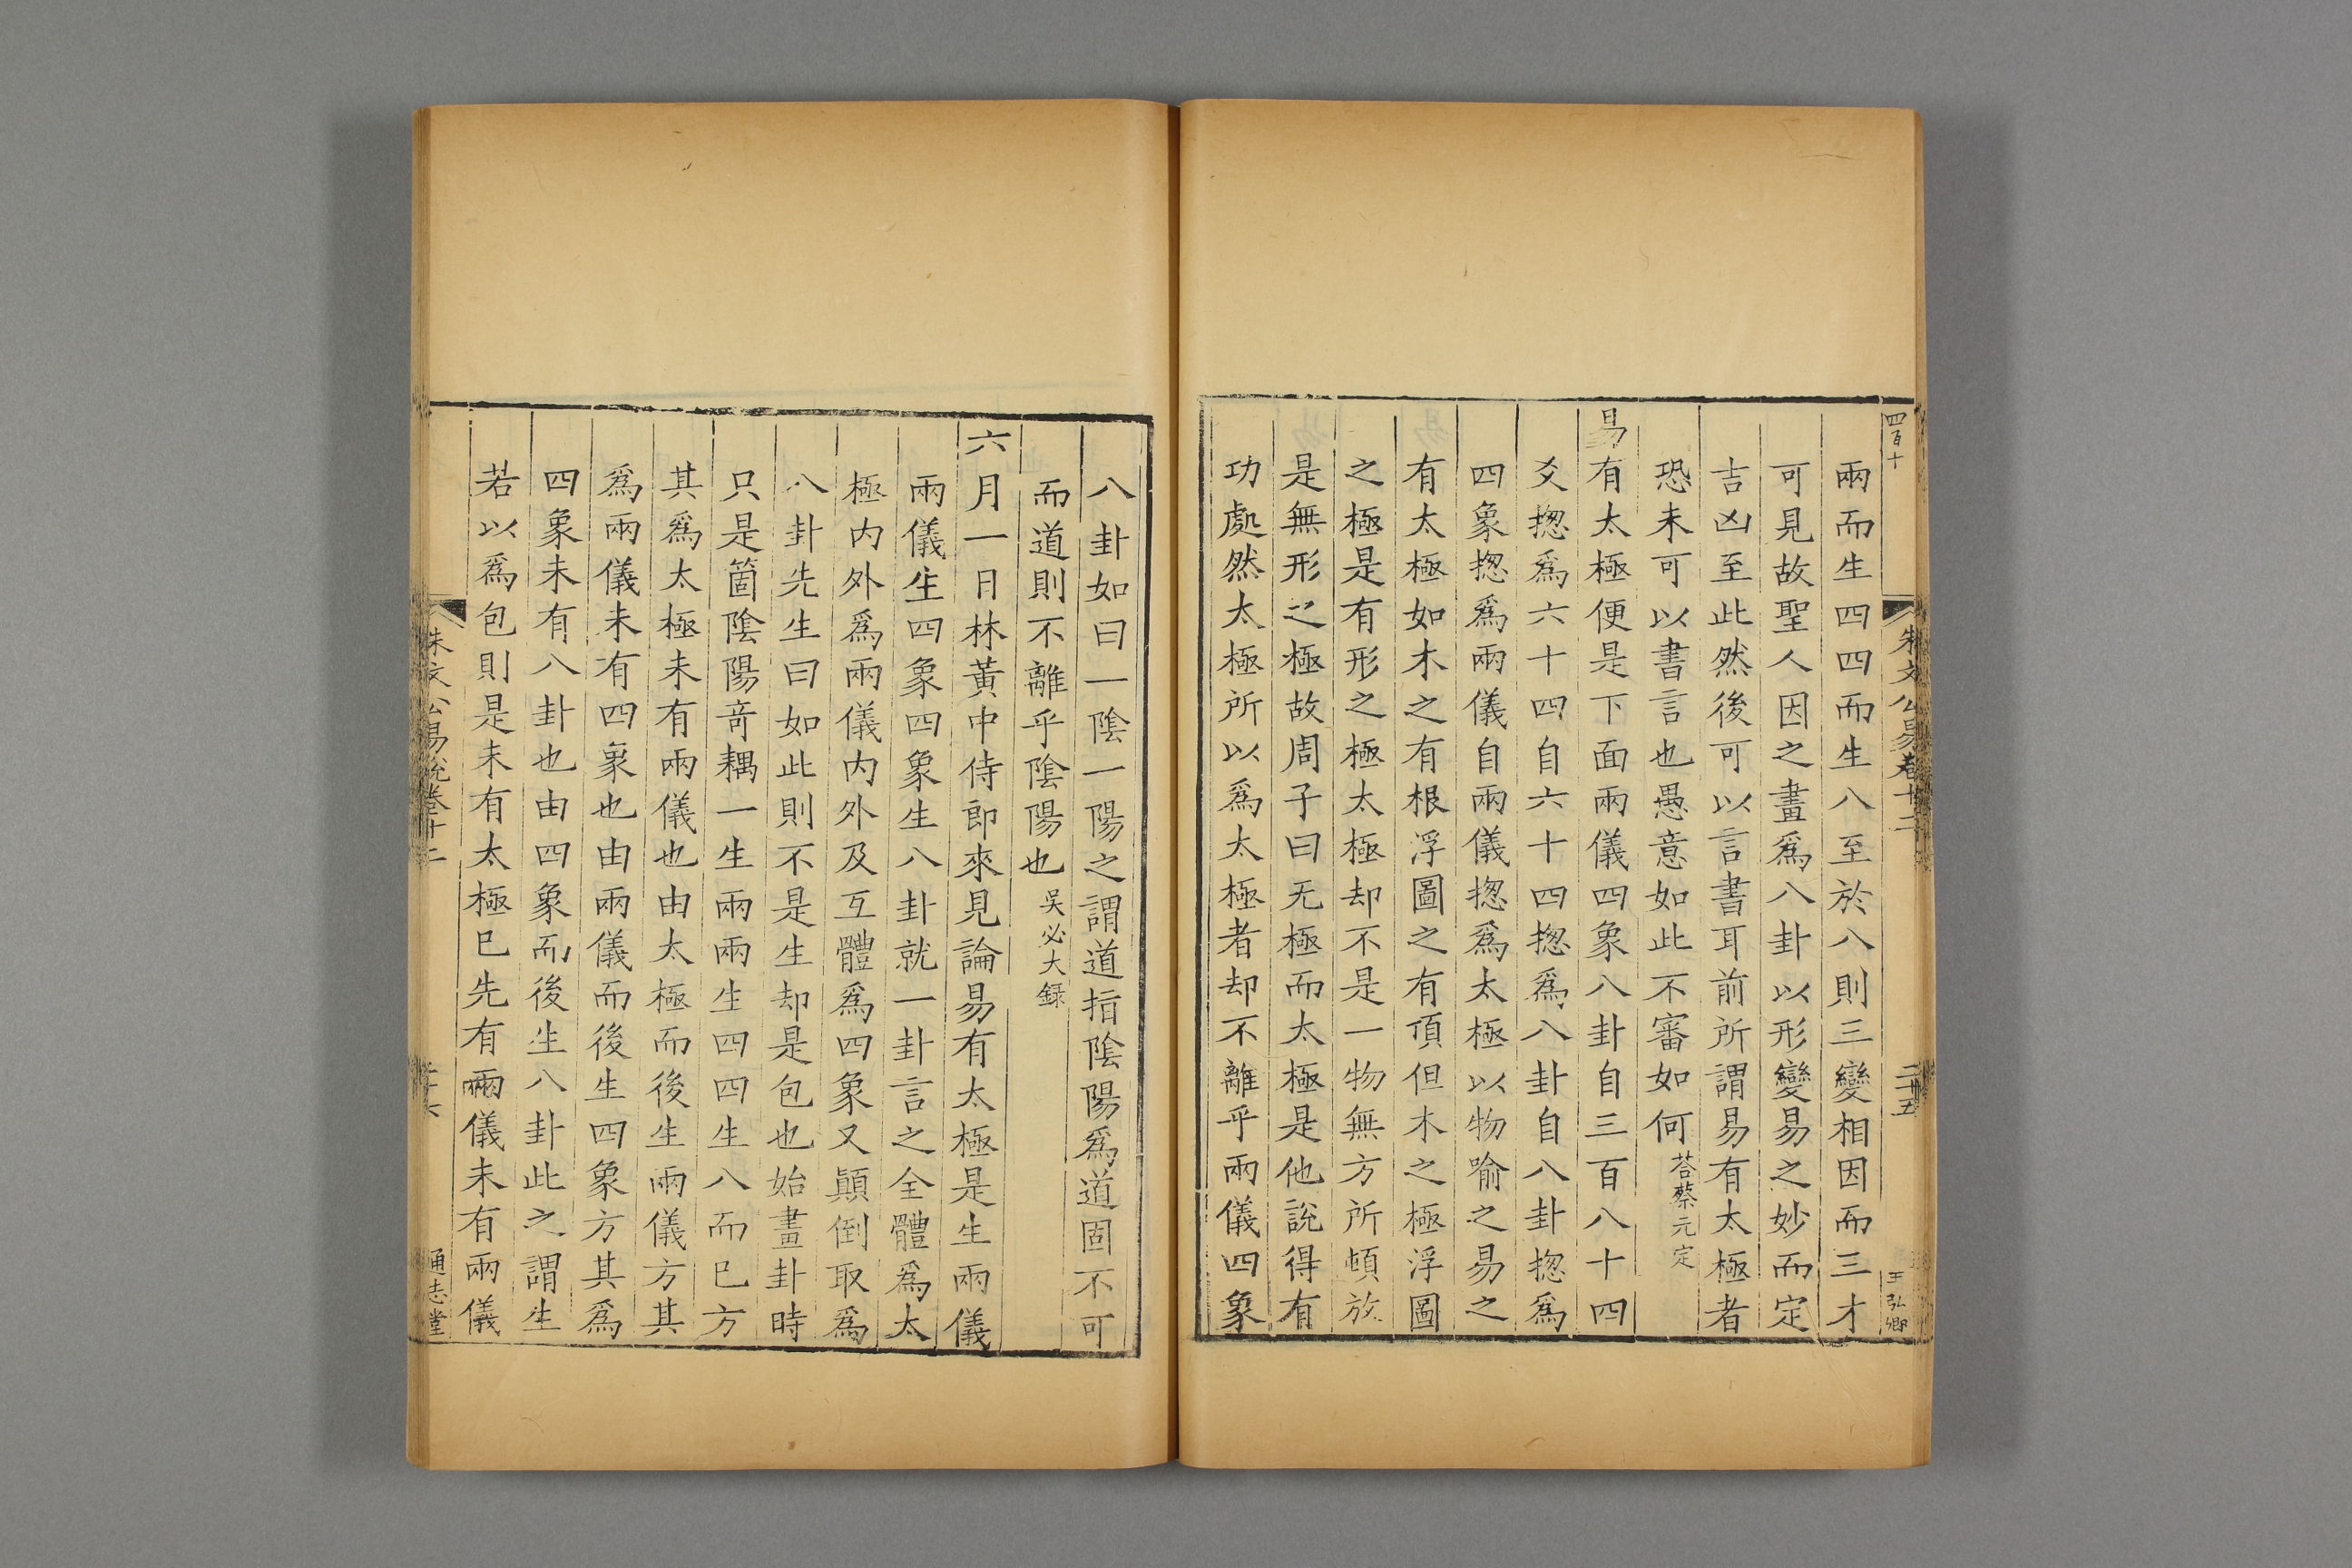 四百十
朱文公易卷十二
二十五
王弘卿
兩而生四四而生八至於八則三變相因而三才
可見故聖人因之畫爲八卦以形變易之妙而定
吉凶至此然後可以言書耳前所謂易有太極者
恐未可以書言也愚意如此不審如何荅蔡元定
易有太極便是下面兩儀四象八卦自三百八十四
爻揔爲六十四自六十四揔爲八卦自八卦揔爲
四象揔爲兩儀自兩儀揔爲太極以物喻之易之
有太極如木之有根浮圖之有頂但木之極浮圖
之極是有形之極太極却不是一物無方所頓放
是無形之極故周子曰无極而太極是他說得有
功處然太極所以爲太極者却不離乎兩儀四象
八卦如曰一陰一陽之謂道指陰陽爲道固不可
而道則不離乎陰陽也吳必大録
六月一日林黃中侍郎來見論易有太極是生兩儀
兩儀生四象四象生八卦就一卦言之全體爲太
極内外爲兩儀内外及互體爲四象又顚倒取爲
八卦先生曰如此則不是生却是包也始畫卦時
只是箇陰陽竒耦一生兩兩生四四生八而已方
其爲太極未有兩儀也由太極而後生兩儀方其
爲兩儀未有四象也由兩儀而後生四象方其爲
四象未有八卦也由四象而後生八卦此之謂生
若以爲包則是未有太極已先有兩儀未有兩儀
朱文公易說卷十二
通志堂